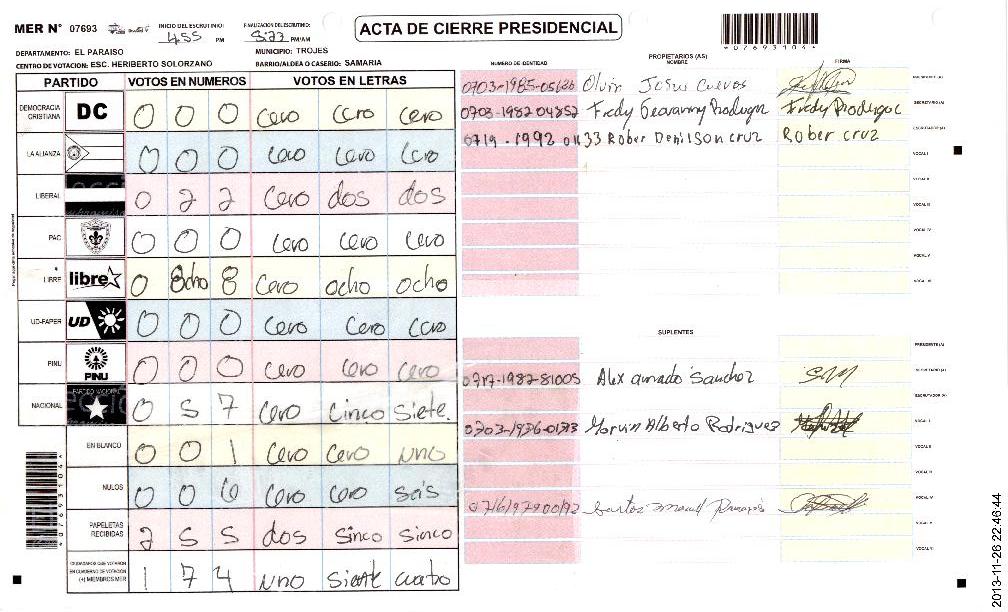 MER N° 07693 INICIO DEL ESCRUTINIO: 4:55 PM FINALIZACIÓN DEL ESCRUTINIO: PM/AM
ACTA DE CIERRE PRESIDENCIAL
*07693104*
DEPARTAMENTO: EL PARAISO MUNICIPIO: TROJES
CENTRO DE VOTACION: ESC. HERIBERTO SOLORZANO BARRIO/ALDEA O CASERIO: SAMARIA
PARTIDO VOTOS EN NUMEROS VOTOS EN LETRAS
DEMOCRACIA CRISTIANA DC 0 0 0 cero cero cero
LA ALIANZA 0 0 0 cero cero cero
LIBERAL 0 2 2 cero dos dos
PAC 0 0 0 cero cero cero
LIBRE libre 0 8cho 8 cero ocho ocho
UD-FAPER UD 0 0 0 cero cero cero
PINU PINU 0 0 0 cero cero cero
NACIONAL PARTIDO NACIONAL 0 5 7 cero cinco siete.
EN BLANCO 0 0 1 cero cero uno
NULOS 0 0 6 cero cero seis
PAPELETAS RECIBIDAS 2 5 5 dos sinco sinco
CIUDADANOS QUE VOTARON EN CUADERNO DE VOTACIÓN (+) MIEMBROS MER 1 7 4 uno siente cuatro
*07693104*
PROPIETARIOS (AS)
NUMERO DE IDENTIDAD NOMBRE FIRMA
0703-1985-05626 Olvin Josue Cuevas PRESIDENTE (A)
0703-1982 04852 Fredy Geovanny Rodriguez Fredy Rodriguez SECRETARIO (A)
0719-1992 01133 Rober Denilson cruz Rober cruz ESCRUTADOR (A)
VOCAL I
VOCAL II
VOCAL III
VOCAL IV
VOCAL V
VOCAL VI
SUPLENTES
PRESIDENTE (A)
0717-1982-81005 Alex amado Sanchez SECRETARIO (A)
ESCRUTADOR (A)
0703-1976-0173 Marvin Alberto Rodriguez VOCAL I
VOCAL II
VOCAL III
Santos VOCAL IV
VOCAL V
VOCAL VI
2013-11-26 22:46:44